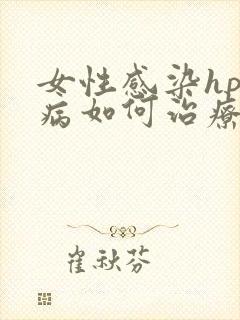 女性感染hp
病如何治疗
崔秋芬